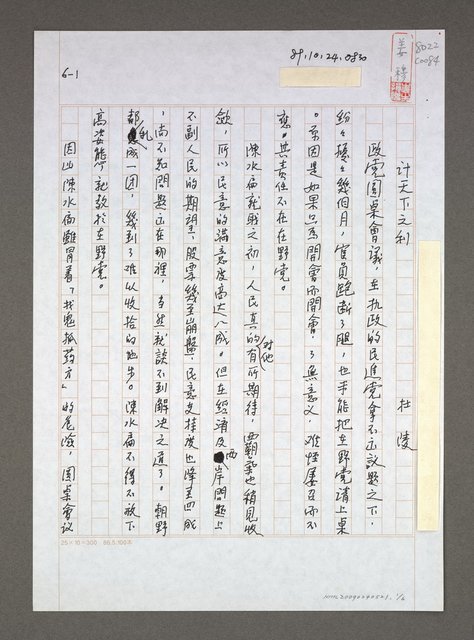 89.10.24.0830
姜穆
8022
C0084
6-1
計天下之利
杜陵
政黨圓桌會議,在執政的民進黨拿不出議題之下,
紛々擾々幾個月,官員跑斷了腿,也未能把在野黨請上桌
。原因是如果只為開會而開會,了無意义,难怪屡召而不
應。其責任不在在野黨。
陳水扁就职之初,人民真的對他有所期待,霸氣也稍見收
歛,所以民意的滿意度高达八成。但在經濟及两岸問題上
不副人民的期望,股票幾至崩盤,民意支持度也降至四成
,尚不知問題出在那裡,当然就談不到解決之道了。朝野
都乱成一团,幾到了难以收拾的地步。陳水扁不得不放下
高姿態,就教於在野黨。
因此陳水扁雖冒着「找鬼抓药方」的危險,圆桌會议
25×10=300 86.5.100本